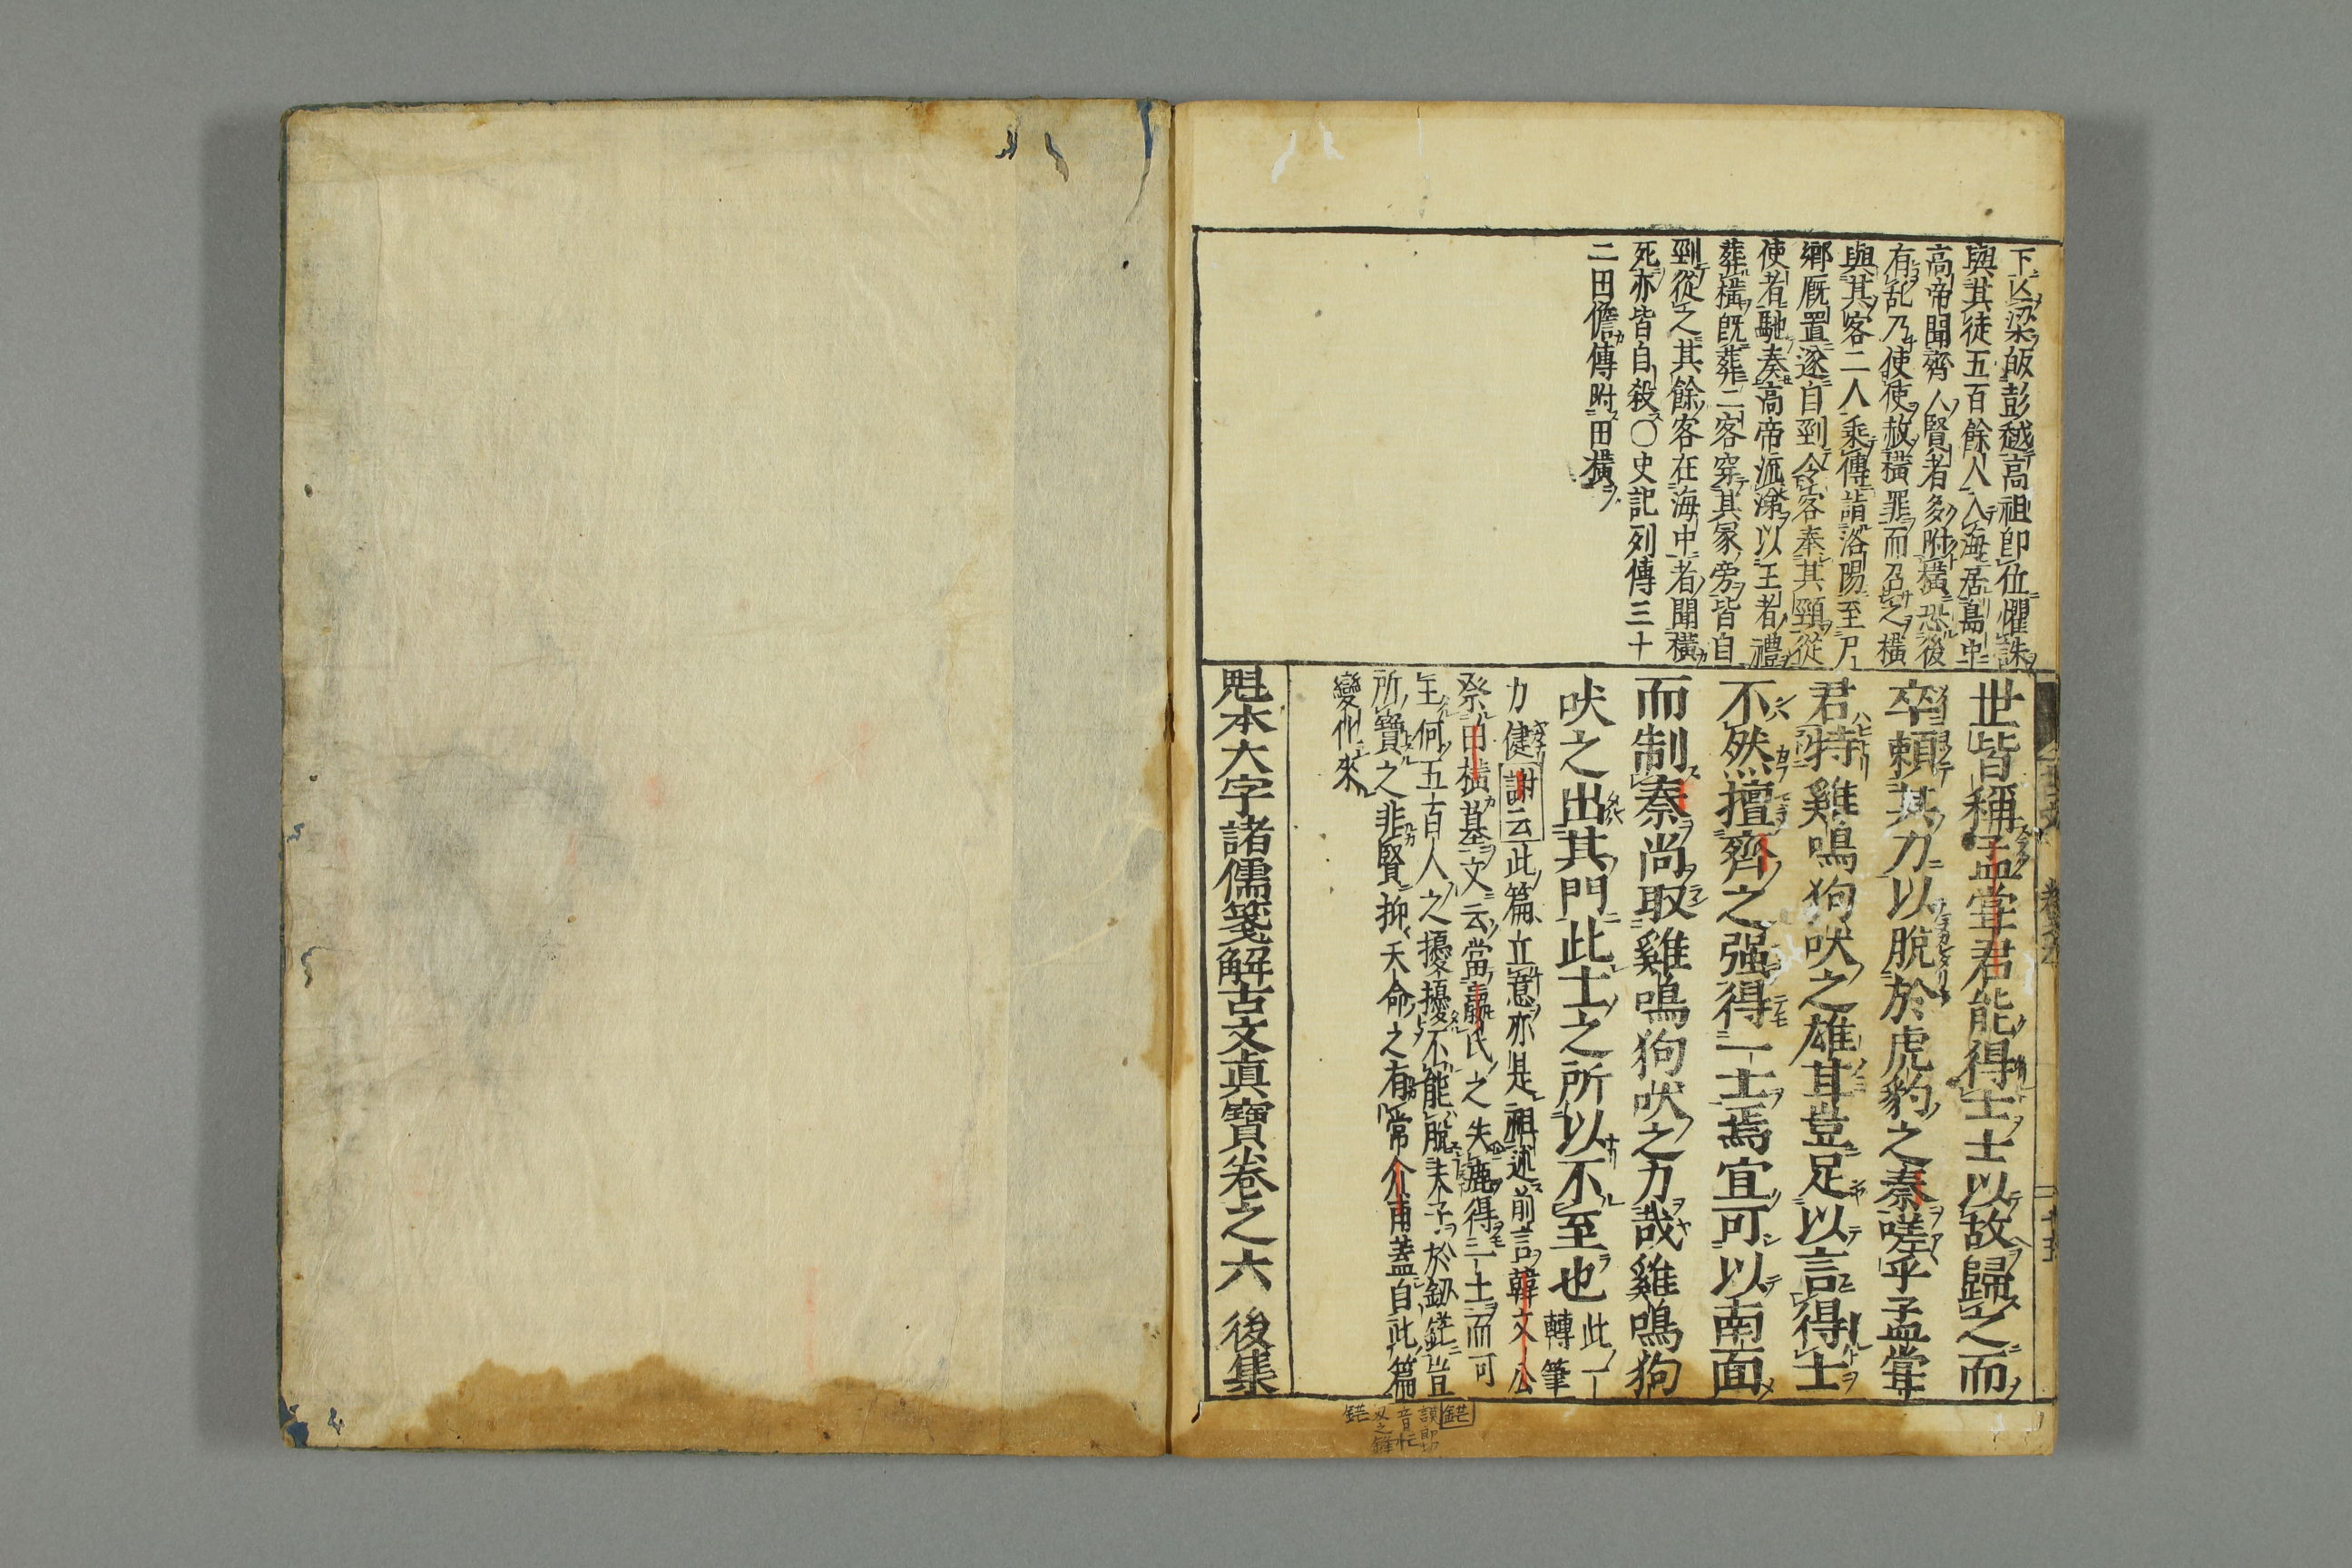 下以梁皈彭越高祖即位懼誅
與其徒五百餘人入海居嶌中
高帝聞齊人賢者多附橫恐後
有乱乃使使赦橫罪而召之橫
與其客二人乘傳詣洛陽至尸
鄉厩置遂自剄令客奉其頸從
使者馳奏高帝流涕以王者禮
葬橫既葬二客穿其冢旁皆自
剄從之其餘客在海中者聞橫
死亦皆自殺○史記列傳三十
二田儋傳附田橫
世皆稱孟甞君能得士士以故歸之而
卒賴其力以脫於虎豹之秦嗟乎孟甞
君特雞鳴狗吠之雄耳豈足以言得士
不然擅齊之强得一士焉宜可以南面
而制秦尚取雞鳴狗吠之力哉雞鳴狗
吠之出其門此士之所以不至也此一
轉筆
力健謝云此篇立意亦是祖述前言韓文公
祭田橫墓文云當嬴氏之失鹿得一士而可
王何五百人之擾擾不能脫夫子於釼鋩豈
所寶之非賢抑天命之有常介甫蓋自此篇
變化來
魁本大字諸儒箋解古文眞寶卷之六 後集
鋩
音忙
刄之鋒
鋩